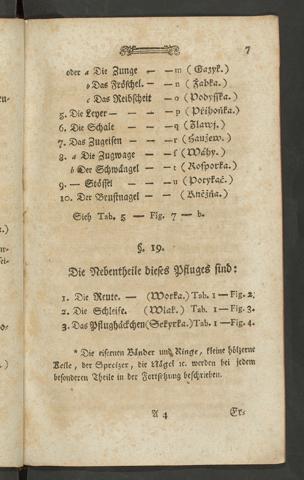 7
oder a Die Zunge — — m (Gazyk.)
b Das Fröschel. — — n (Žabka.)
c Das Reibscheit — o (Podyſſka.)
5. Die Leyer — — — p (Přihoňka.)
6. Die Schale — — — q (Hlawj.)
7. Das Zugeisen — — r (Haužew.)
8. a Die Zugwage — — ſ (Wáhy.)
b Der Schwängel — — t (Roſporka.)
9. — Stössel — — u (Porykač.)
10. Der Brustnagel — — (Kněžna.)
Sieh Tab. 5 — Fig. 7 — b.
§. 19.
Die Nebentheile dieses Pfluges sind:
1. Die Reute. — (Worka.) Tab. 1 — Fig. 2.
2. Die Schleife. (Wlak.) Tab. 1 — Fig. 3.
3. Das Pflughäckchen (Sekyrka.) Tab. 1 — Fig. 4.
* Die eisernen Bänder und Ringe, kleine hölzerne
Keile, der Spreizer, die Nägel ꝛc. werden bey jedem
besonderen Theile in der Fortsetzung beschrieben.
A 4
Er⸗